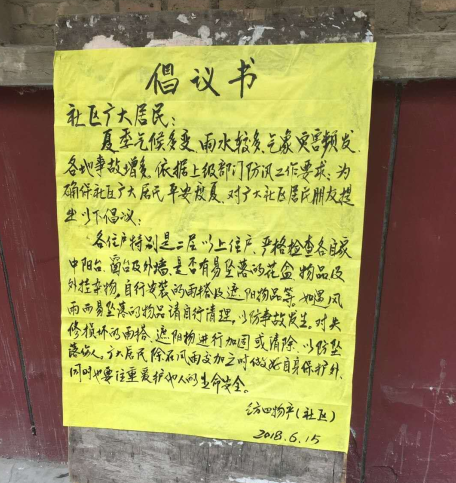 倡议书
社区广大居民：
夏季气候多变，雨水较多，气象灾害频发，
各地事故增多，依据上级部门防汛工作要求，为
确保社区广大居民平安度夏，对广大社区居民朋友提
出以下倡议：
各住户特别是二层以上住户，严格检查各自家
中阳台、窗台及外墙，是否有易坠落的花盆、物品及
外挂杂物，自行安装的雨搭及遮阳物品等。如遇风
雨而易坠落的物品请自行清理，以防事故发生。对失
修损坏的雨搭、遮阳物进行加固或清除，以防坠
落伤人。广大居民除在风雨交加之时做好自身保护外，
同时也要注重爱护他人的生命安全。
纺四物平（社区）
2018.6.15